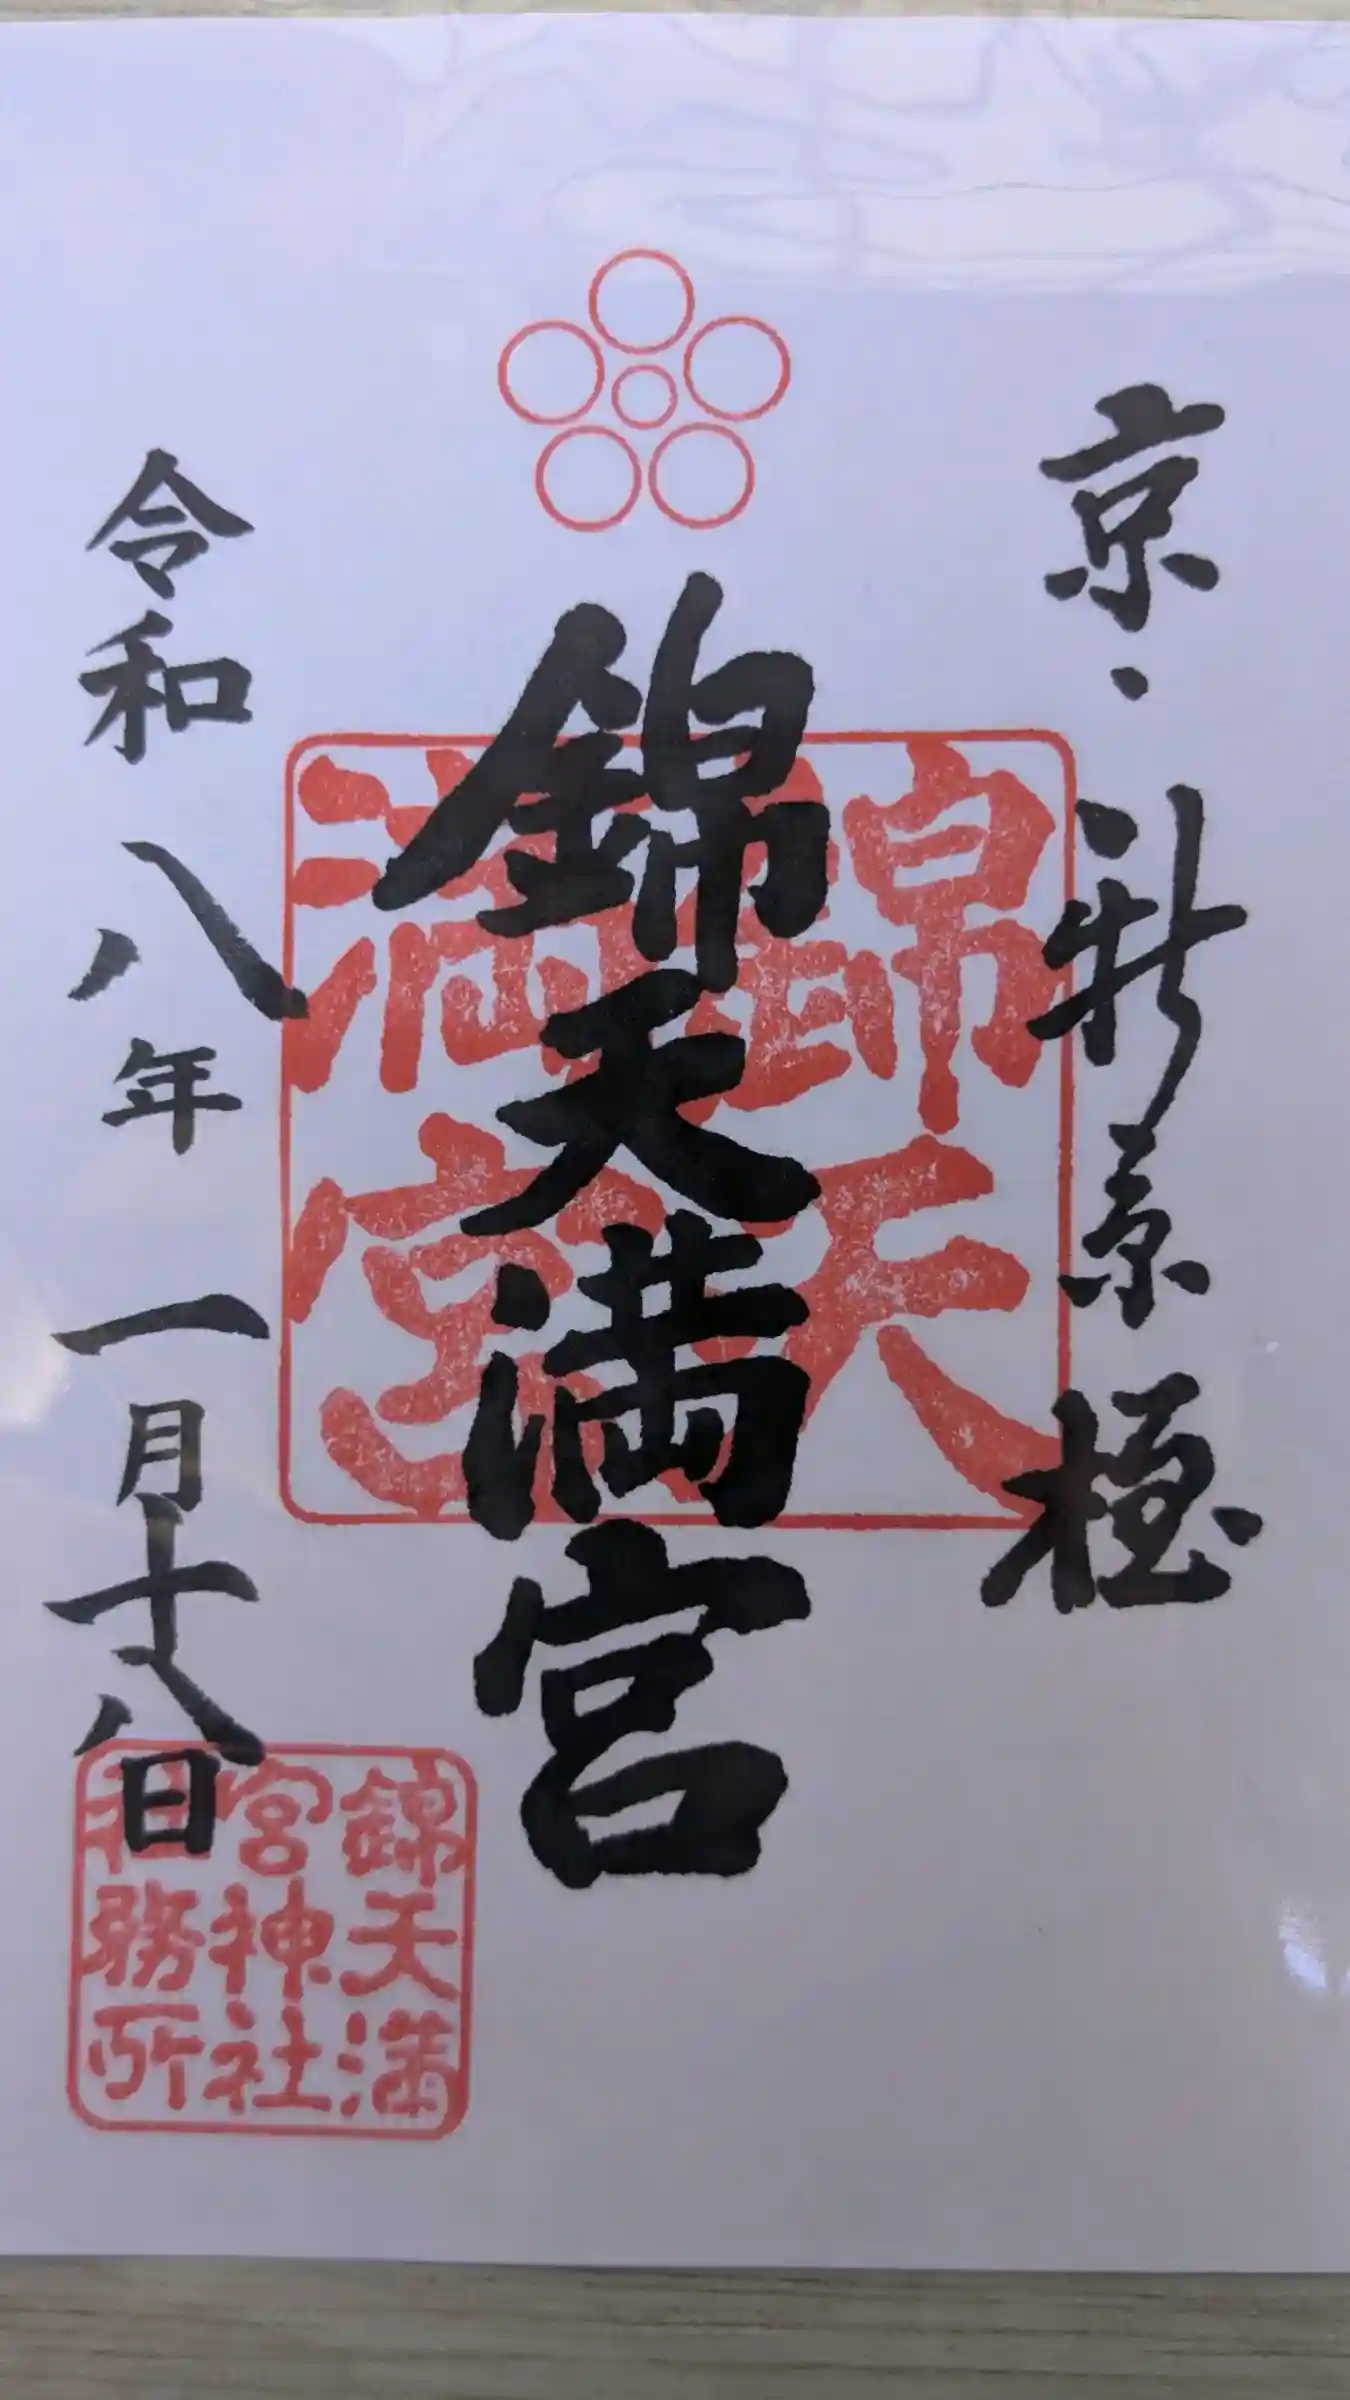 京・新京極
錦天満宮
錦天
満宮
令和八年一月十八日
錦天満
宮神社
社務所